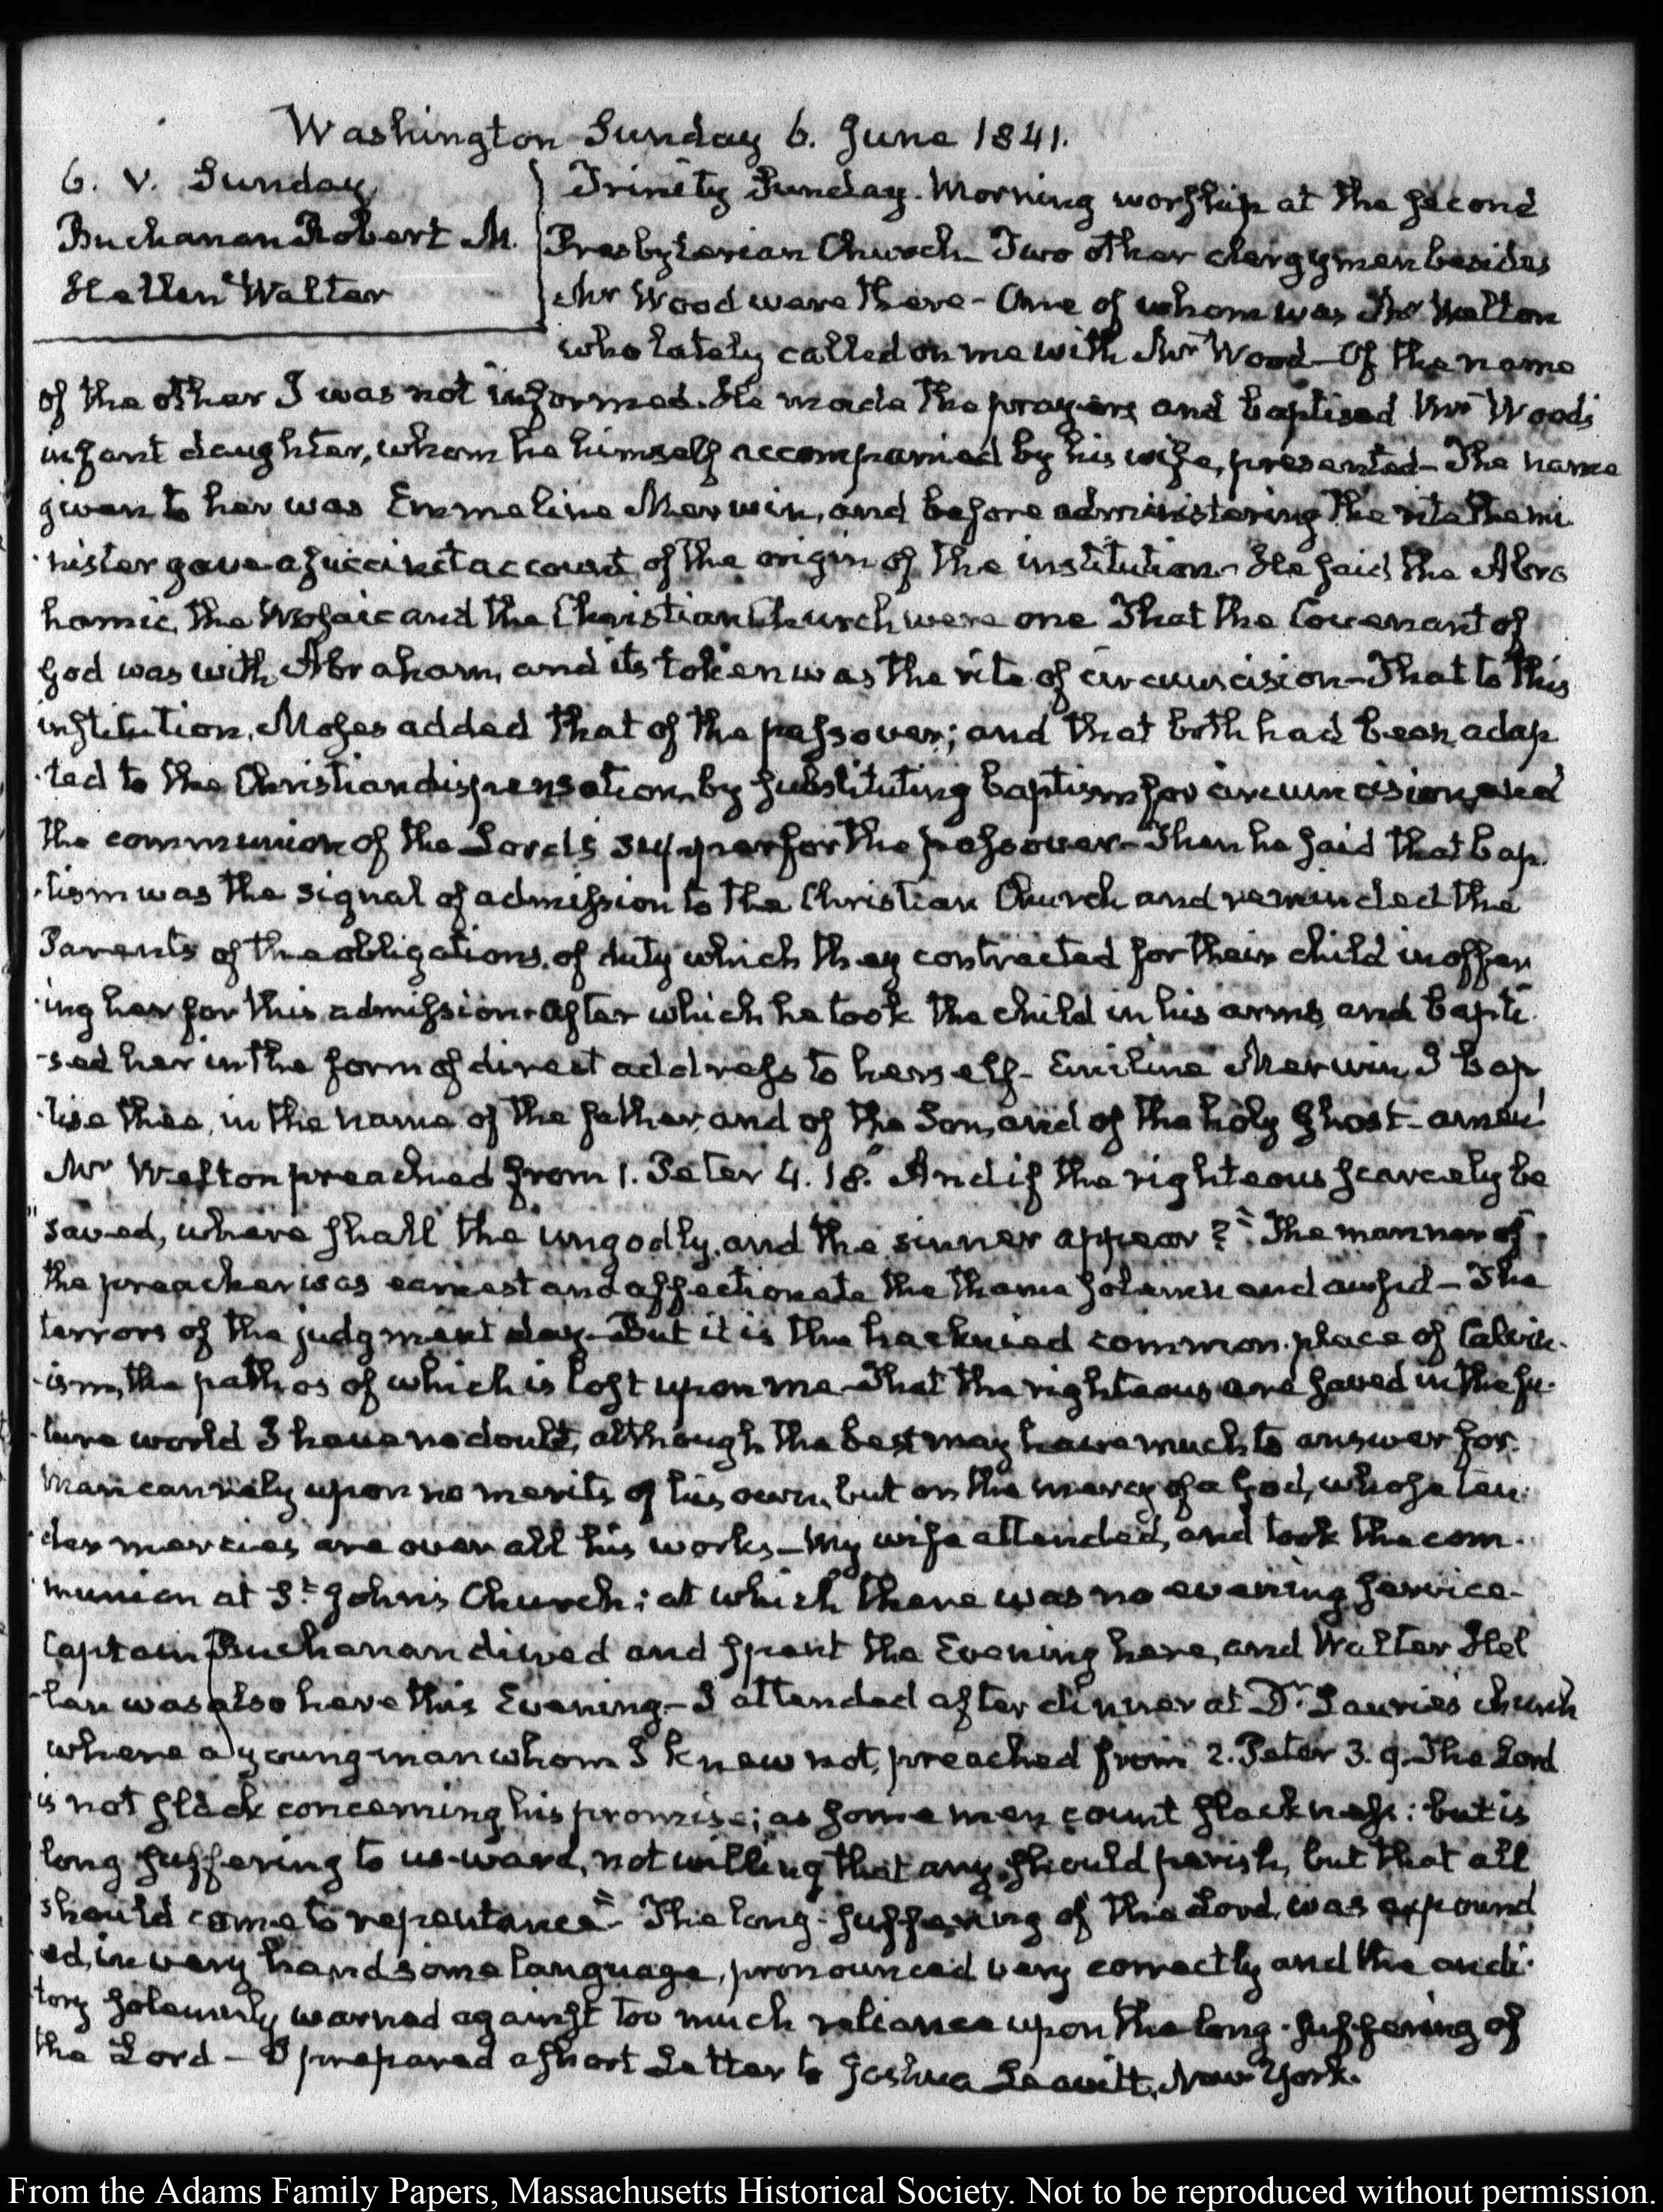 Washington Sunday 6. June 1841.
6. V. Sunday
Buchanan Robert M.
Hellen Walter
Trinity Sunday. Morning worship at the second
Presbyterian Church. Two other clergymen besides
Mr Wood were there – One of whom was Mr Welton
who lately called on me with Mr Wood – Of the name
of the other I was not informed. He made the prayers and baptised Mr Wood's
infant daughter, whom he himself accompanied by his wife, presented – The name
given to her was Emmeline Merwin, and before administering the rite the mi
nister gave a succinct account of the origin of the institution – He said the Abra
hamic, the Mosaic and the Christian Church were one That the Covenant of
God was with Abraham, and its token was the rite of circumcision – That to this
institution, Moses added that of the passover; and that both had been adap
ted to the Christian dispensation, by substituting baptism for circumcision, and
the communion of the Lord's supper for the passover – Then he said that bap
tism was the signal of admission to the Christian Church and reminded the
Parents of the obligations of duty which they contracted for their child in offer
ing her for this admission – After which he took the child in his arms, and bapti
sed her in the form of direct address to herself – Emiline Merwin, I bap
tise thee, in the name of the father, and of the Son, and of the holy Ghost – amen
Mr Welton preached from 1. Peter 4. 18. And if the righteous scarcely be
"saved, where shall the ungodly, and the sinner appear?" The manner of
the preacher was earnest and affectionate the theme solemn and awful – The
terrors of the judgment day – But it is the hacknied common-place of Calvin-
ism, the pathos of which is lost upon me – That the righteous are saved in the fu-
ture world I have no doubt, although the best may have much to answer for.
Man can rely upon no merits of his own, but on the mercy of a God, whose ten-
der mercies are over all his works – My wife attended, and took the com-
munion at St. John's Church; at which there was no evening service –
Captain Buchanan dined and spent the Evening here, and Walter Hel
len was also here this Evening – I attended after dinner at Dr Laurie's church
where a young man whom I knew not, preached from 2. Peter 3. 9. The Lord
is not slack concerning his promise; as some men count slackness: but is
long suffering to us-ward, not willing that any should perish, but that all
should come to repentance" – The long-suffering of the Lord, was expound
ed, in very handsome language, pronounced very correctly and the audi-
tory solemnly warned against too much reliance upon the long-suffering of
the Lord – I prepared a short Letter to Joshua Leavitt, New York.
From the Adams Family Papers, Massachusetts Historical Society. Not to be reproduced without permission.